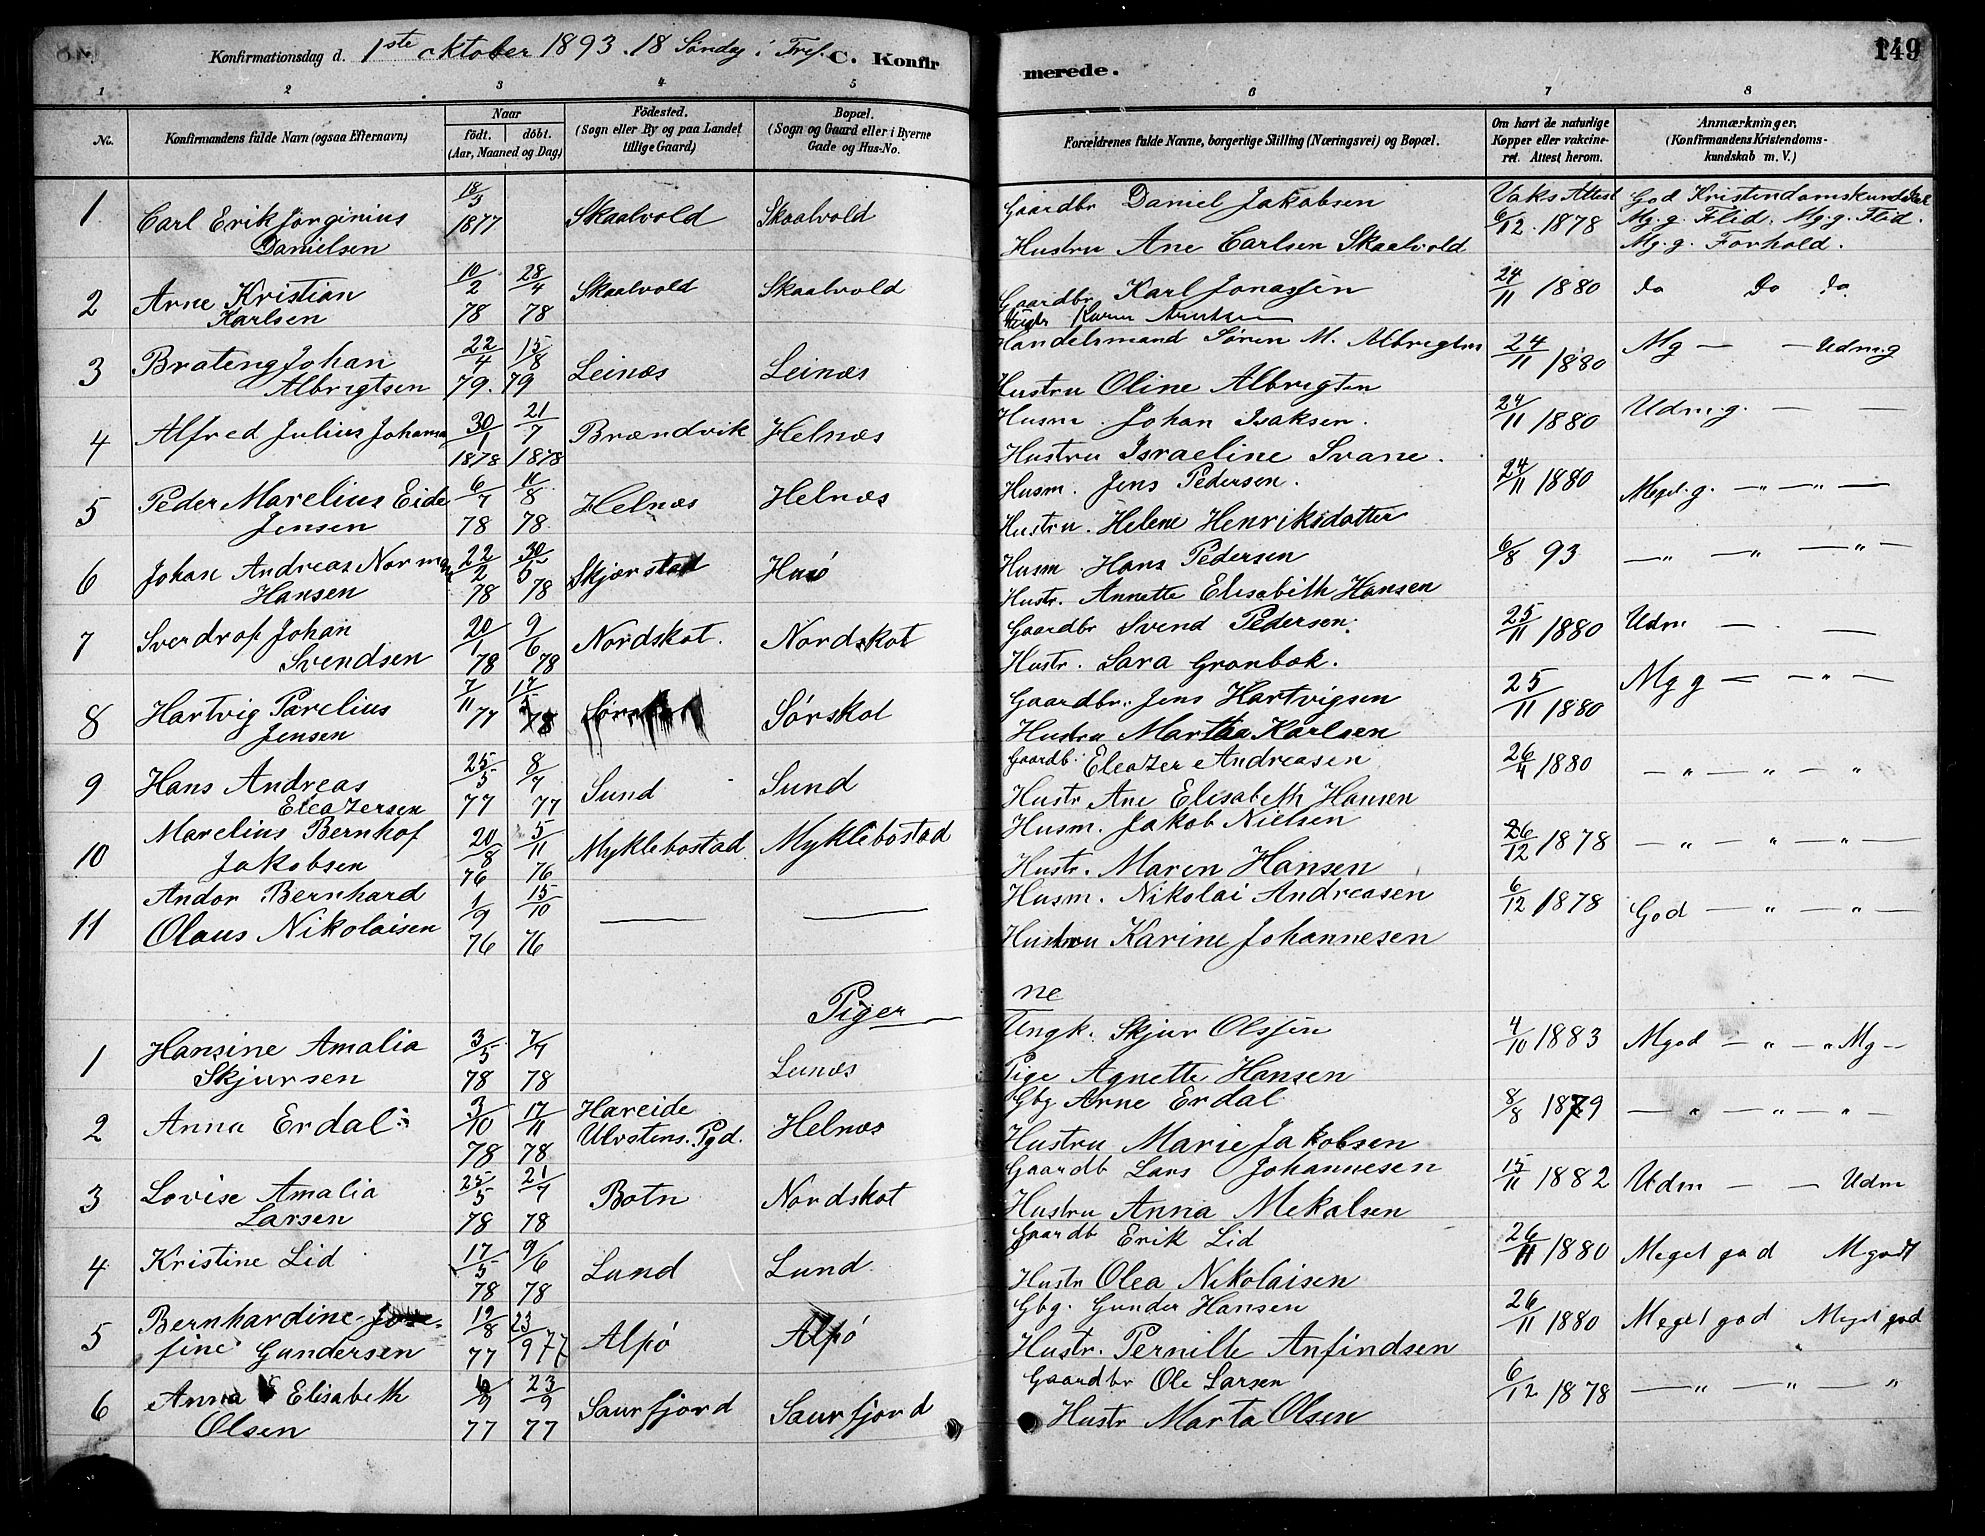 Konfirmationsdag d. 1ste oktober 1893. 18 Søndag i Tref. C. Konfir
merede.
149
1 2 3 4 5
6 7 8
No.
Konfirmandens fulde Navn (ogsaa Efternavn)
Naar
födt. döbt.
(Aar, Maaned og Dag)
Födested.
(Sogn eller By og paa Landet
tillige Gaard)
Bopæl.
(Sogn og Gaard eller i Byerne
Gade og Hus-No.
Forældrenes fulde Navne, borgerlige Stilling (Næringsvei) og Bopæl.
Om havt de naturlige
Kopper eller vakcine-
ret. Attest herom.
Anmærkninger,
(Konfirmandens Kristendoms-
kundskab m. V.)
1 Carl Erik Jørginius 18/3 Skaalvold Skaalvold Gaardbr Daniel Jakobsen Vaks Attest God Kristendomskundskab
Danielsen 1877 Hustru Ane Carlsen Skaalvold 6/12 1878 Mg.g. Flid. Mg.g. Flid.
Mg.g. Forhold.
2 Arne Kristian 10/2 28/4 Skaalvold Skaalvold Gaardbr Karl Jonassen 24/11 1880 do Do do
Karlsen 78 78 Hustr Karen
3 Brateng Johan 22/4 15/8 Leinæs Leinæs Handelsmand Søren M. Albrigtsn 24/11 1880 Mg — — Udm.g
Albrigtsen 79. 79 Hustru Oline Albrigtsn
4 Alfred Julius Johansn 30/1 21/7 Brændvik Helnæs Husm. Johan Isaksen. 24/11 1880 Udm.g. — —
1878 1878 Hustru Israeline Svane.
5 Peder Marelius Eide 6/7 11/8 Helnæs Helnæs Husm. Jens Pedersen. 24/11 1880 Meget.g. — " — " —
Jensen 78 78. Hustru. Helene Henriksdatter
6 Johan Andreas Norman 22/2 30/5 Skjørstad Husø Husm. Hans Pedersen 6/8 93 — " — " — " —
Hansen 78 78 Hustr. Annette Elisabeth Hansen
7 Sverdrop Johan 20/1 9/6 Nordskot. Nordskot Gaardbr Svend Pedersen. 25/11 1880 Udm — . —
Svendsen 78 78 Hustr. Sara Grønbæk.
8 Hartvig Parelius 7/11 17/5 Sørskot Gaardbr. Jens Hartvigsen 25/11 1880 Mg g — — " —
Jensen 77 78 Hustru Martha Karlsen
9 Hans Andreas 25/5 8/7 Sund Sund Gaardb. Eleazer Andreasen 26/11 1880 — " — " — "
Eleazersen 77 77 Hustr Ane Elisabeth Hansen
10 Marelius Bernhof 20/8 5/11 Myklebostad Myklebostad Husm. Jakob Nielsen 26/12 1878 — " — " — " —
Jakobsen 76 76 Hustr. Maren Hansen
11 Andor Bernhard 1/9 15/10 — — Husm. Nikolai Andreasen 6/12 1878 God — " — " —
Olaus Nikolaisen 76 76 Hustru Karine Johannesen
Piger
ne
1 Hansine Amalia 3/5 7/7 Leinæs Ungk. Skjur Olssen 4/10 1883 Mgod — " — " Mg —
Skjursen 78 78 Pige Agnette Hansen
2 Anna Erdal 3/10 17/11 Hareide Helnæs Gbg Arne Erdal 8/8 1879 — " — " — " —
78 78 Ulvstens. Pgd. Hustru Marie Jakobsen
3 Lovise Amalia 25/5 21/7 Botn Nordskot Gaardb Lars Johannesen 15/11 1882 Udm — — Udm
Larsen 78 78 Hustru Anna Mekalsen
4 Kristine Lid 17/5 9/6 Lund Lund Gaardb Erik Lid 26/11 1880 Meget god Mgodt
78 78 Hustr Olea Nikolaisen
5 Bernhardine Jose- 19/8 23/9 77 Alpø Alpø Gbg. Gunder Hansen 26/11 1880 Meget god Meget god
fine Gundersen 77 Hustr. Pernille Anfindsen
6 Anna Elisabeth 6/9 23/9 Saurfjord Saurfjord Gaardbr Ole Larsen 6/12 1878 — " — " — "
Olsen 77 77 Hustr Marta Olsen